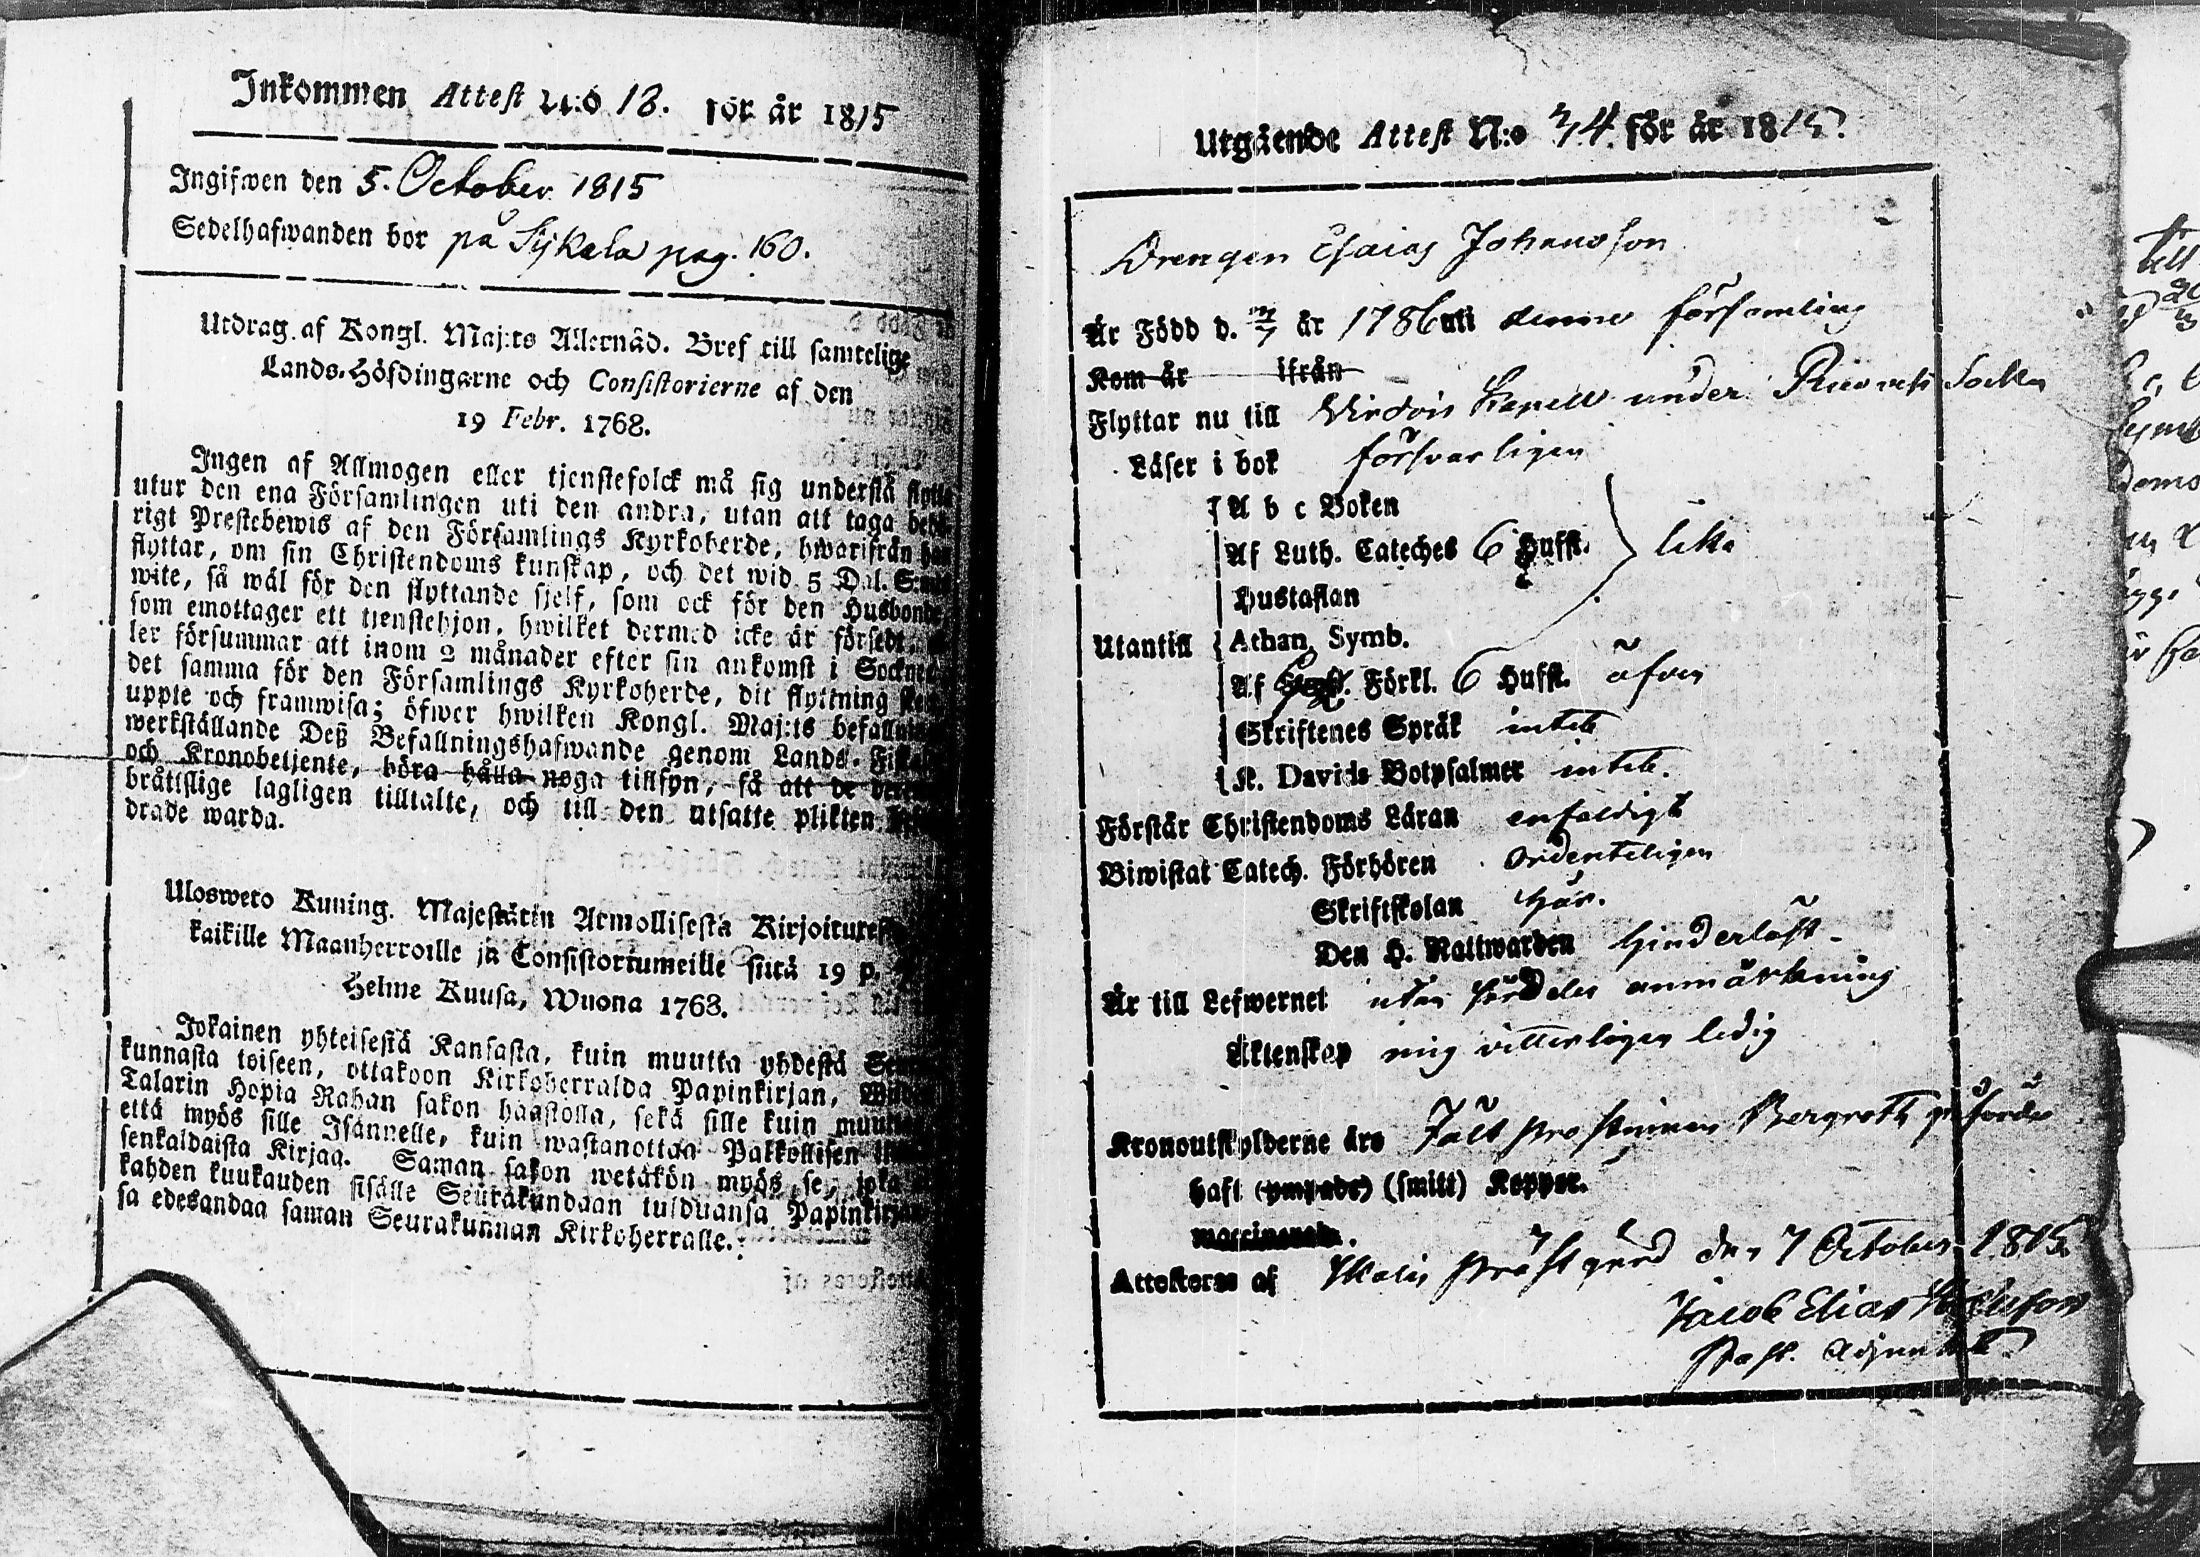 Inkommen Attest N:o 18. för år 1815
Ingifwen den 5. October 1815
Sedelhafwanden bor på Sykala pag. 160.
Utdrag af Kongl. Maj:ts Allernåd. Bref till samtelige
Lands-Höfdingarne och Consistorierne af den
19 Febr. 1768.
Ingen af Allmogen eller tjenstefolck må sig understå flytta
utur den ena Församlingen uti den andra, utan att taga
rigt Prestebewis af den Församlings Kyrkoherde, hwarifrån han
flyttar, om sin Christendoms kunskap, och det wid 5 Dal. S:mt
wite, så wäl för den flyttande sjelf, som ock för den Husbonde
som emottager ett tjenstehjon, hwilket dermed icke är försedt,
ler försummar att inom 2 månader efter sin ankomst i Socknen
det samma för den Församlings Kyrkoherde, dit flyttning
uppte och framwisa; öfwer hwilken Kongl. Maj:ts befallning
werkställande Deß Befallningshafwande genom Lands-
och Kronobetjente, böra hålla noga tillsyn, så att de
bråttslige lagligen tilltalte, och till den utsatte plikten
drade warda.
Ulosweto Kuning. Majestätin Armollisesta
kaikille Maanherroille ja Consistoriumeille siitä 19 p.
Helme Kuusa, Wuona 1768.
Jokainen yhteisestä Kansasta, kuin muutta yhdestä
kunnasta toiseen, ottakoon Kirkoherralda Papinkirjan,
Talarin Hopia Rahan sakon haastolla, sekä sille kuin
että myös sille Isännelle, kuin wastanottaa Palkollisen
senkaldaista Kirjaa. Saman sakon wetäkön myös se, joka
kahden kuukauden sisälle Seurakundaan tulduansa Papinkirjaa
sa edesandaa saman Seurakunnan Kirkoherralle.
Utgående Attest N:o 34. för år 1815.
Drengen Esaias Johansson
År Född d. 7 år 1786 uti denne församling
Kom år ifrån
Flyttar nu till Virdois Kapell under Ruovesi Socken
Läser i bok försvarligen
A b c Boken
Af Luth. Cateches 6 Hufst. lika
Hustaflan
Utantill Athan. Symb.
Af Förkl. 6 Hufst. äfven
Skriftenes Språk intet
K. Davids Botpsalmer intet.
Förstår Christendoms Läran enfaldigt
Biwistat Catech. Förhören ordenteligen
Skriftskolan här.
Den H. Nattwarden hinderlöst.
År till Lefwernet utan särdeles anmärkning
Äktenskap mig vetterligen ledig
Kronoutskylderne äro Fält prostinnan Bergroth påförde
haft (ympade) (smitt) Koppor.
Attesteras af Ikalis Prästgård den 7 October 1815.
Jacob Elias
Past. Adjunct.